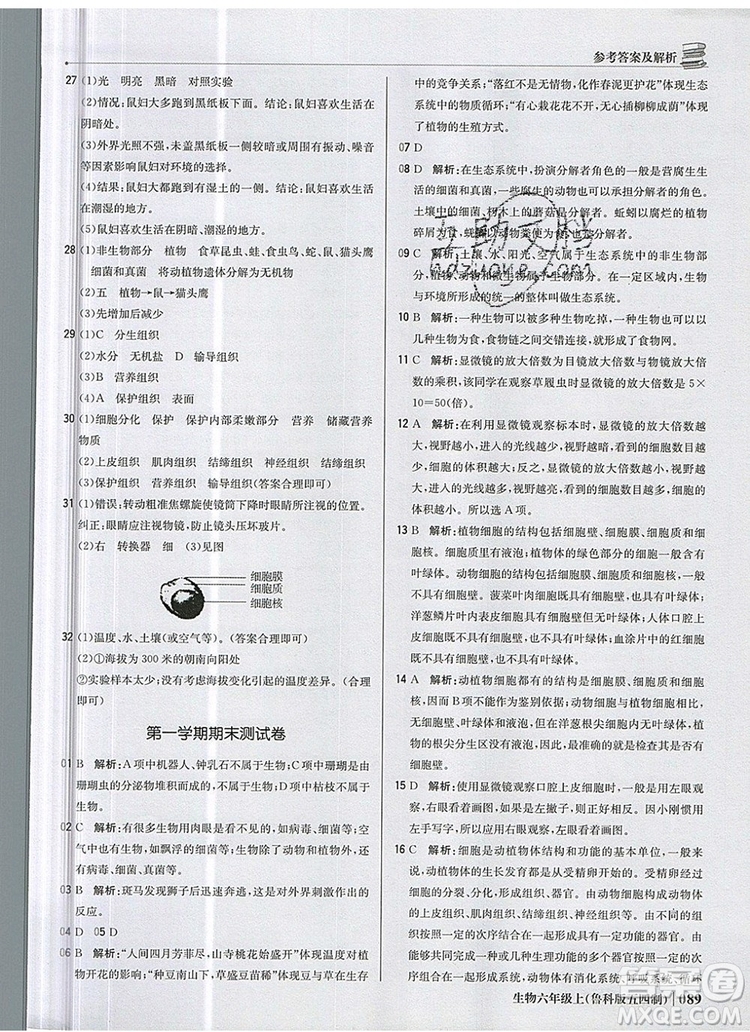 参考答案及解析
27 (1)光 明亮 黑暗 对照实验
(2)情况:鼠妇大多跑到黑纸板下面。结论:鼠妇喜欢生活在
阴暗处。
(3)外界光照不强、光照时间太短、鼠妇数量太少、振动、噪音
等因素影响鼠妇对环境的选择。
(4)结果:鼠妇大多跑到有湿土的一侧。结论:鼠妇喜欢生活
在潮湿的地方。
(5)鼠妇喜欢生活在阴暗、潮湿的地方。
28 (1)非生物部分 植物 食草昆虫、蛙、食虫鸟、蛇、鼠、猫头鹰
细菌和真菌 将动植物遗体分解为无机物
(2)五 植物→鼠→猫头鹰
(3)先增加后减少
29 (1)C 分生组织
(2)水分 无机盐 D 输导组织
(3)B 营养组织
(4)A 保护组织 表面
30 (1)细胞分化 保护 保护内部柔嫩部分 营养 储藏营养
物质
(2)上皮组织 肌肉组织 结缔组织 神经组织 结缔组织
(3)保护组织 营养组织 输导组织(答案合理即可)
31 (1)错误:转动粗准焦螺旋使镜筒下降时眼睛所注视的位置。
纠正:眼睛应注视物镜,防止镜头压坏玻片。
(2)右 转换器 细 (3)见图
细胞膜
细胞质
细胞核
32 (1)温度、水、土壤(或空气等)。(答案合理即可)
(2)①海拔为 300 米的朝南向阳处
②实验样本太少;没有考虑海拔变化引起的温度差异。(合理
即可)
第一学期期末测试卷
01 B 解析:A项中机器人、钟乳石不属于生物;C项中珊瑚是由
珊瑚虫的分泌物堆积而成的,不属于生物;D项中枯枝不属于
生物。
02 C 解析:有很多生物用肉眼是看不到的,如病毒、细菌等;空
气中也有生物,如飘浮的细菌等;有些生物是有害的,如病毒、
细菌、真菌等。
03 B 解析:斑马发现狮子后迅速奔逃,这是对外界刺激作出的
反应。
04 D 05 D
06 B 解析:“人间四月芳菲尽,山寺桃花始盛开”体现温度对植
物开花的影响;“种豆南山下,草盛豆苗稀”体现了生物在环境
中的竞争关系;“落红不是无情物,化作春泥更护花”体现生态
系统中的物质循环;“有心栽花花不开,无心插柳柳成荫”体现
了植物的生殖方式。
07 D
08 D 解析:在生态系统中,扮演分解者角色的一般是营腐生生
活的细菌和真菌,一些腐生的动物也可以是分解者的角色。
土壤中的细菌、朽木上的蘑菇是分解者。蚯蚓以腐烂的植物
碎屑为食,以动物粪便为食,也属于分解者。
09 C 解析:土壤、水、阳光、空气属于生态系统中的非生物部
分,但不包括生物部分。在一定区域内,生物
与环境所形成的统一的整体叫做生态系统。
10 B 解析:一种生物可能被多种生物吃掉,一种生物也可以以
几种生物为食,食物链之间交错连接,形成了食物网。
11 C 解析:显微镜的放大倍数为目镜放大倍数与物镜放大倍
数的乘积,该同学在观察草履虫时显微镜的放大倍数是 5×
10=50(倍)。
12 A 解析:在利用显微镜观察标本时,显微镜的放大倍数越大,
视野越小,进入的光线越少,视野越暗,看到的细胞数目越
少,细胞的体积越大;反之,显微镜的放大倍数越小,视野越
大,进入的光线越多,视野越亮,看到的细胞数目越多,细胞
的体积越小。所以选A项。
13 B 解析:植物细胞的结构包括细胞壁、细胞膜、细胞质和细
胞核。植物体的绿色部分的细胞一般含有叶绿体。动物细
胞的结构包括细胞膜、细胞质和细胞核,动物细胞不具有细
胞壁和叶绿体。菠菜叶肉细胞既具有细胞壁,也具有叶绿体;
洋葱鳞片叶内表皮细胞具有细胞壁,不具有叶绿体;人体口腔上
皮细胞不具有细胞壁,也不具有叶绿体;血涂片中的细胞不
具有细胞壁,也不具有叶绿体。
14 A 解析:动植物细胞都有的结构是细胞膜、细胞质、细胞核,
所以细胞核不能作为鉴别依据;动物细胞和洋葱根尖细胞都
没有叶绿体,所以叶绿体也不能作为鉴别依据;动物细胞没
有细胞壁,而洋葱根尖细胞有细胞壁,
所以最准确的就是检查其是否有细
胞壁。
15 D 解析:使用显微镜观察口腔上皮细胞时,应使用左眼观
察,右眼看着画图,以便及时记录观察结果。因小刚惯用
左手写字,所以可以用右眼观察,左眼看着画图。
16 C 解析:细胞是动植物体结构和功能的基本单位,一般情况
下,动物体的生长发育都是从受精卵开始的。受精卵经过细
胞的分裂、分化,形成组织、器官。由形态相似,结构、功能相
同的细胞联合在一起形成的细胞群叫组织,动物的组织有上
皮组织、肌肉组织、结缔组织和神经组织。不同的组织按照
一定的次序组合在一起形成器官。能够共同完成一种或几种生理功能的多个器官按照一定的次
序组合在一起形成系统。动物体有消化系统、呼吸系统、循环
生物六年级上(鲁科版五四制) 089
互助文档
hdzuoye.com
MXQE.COM